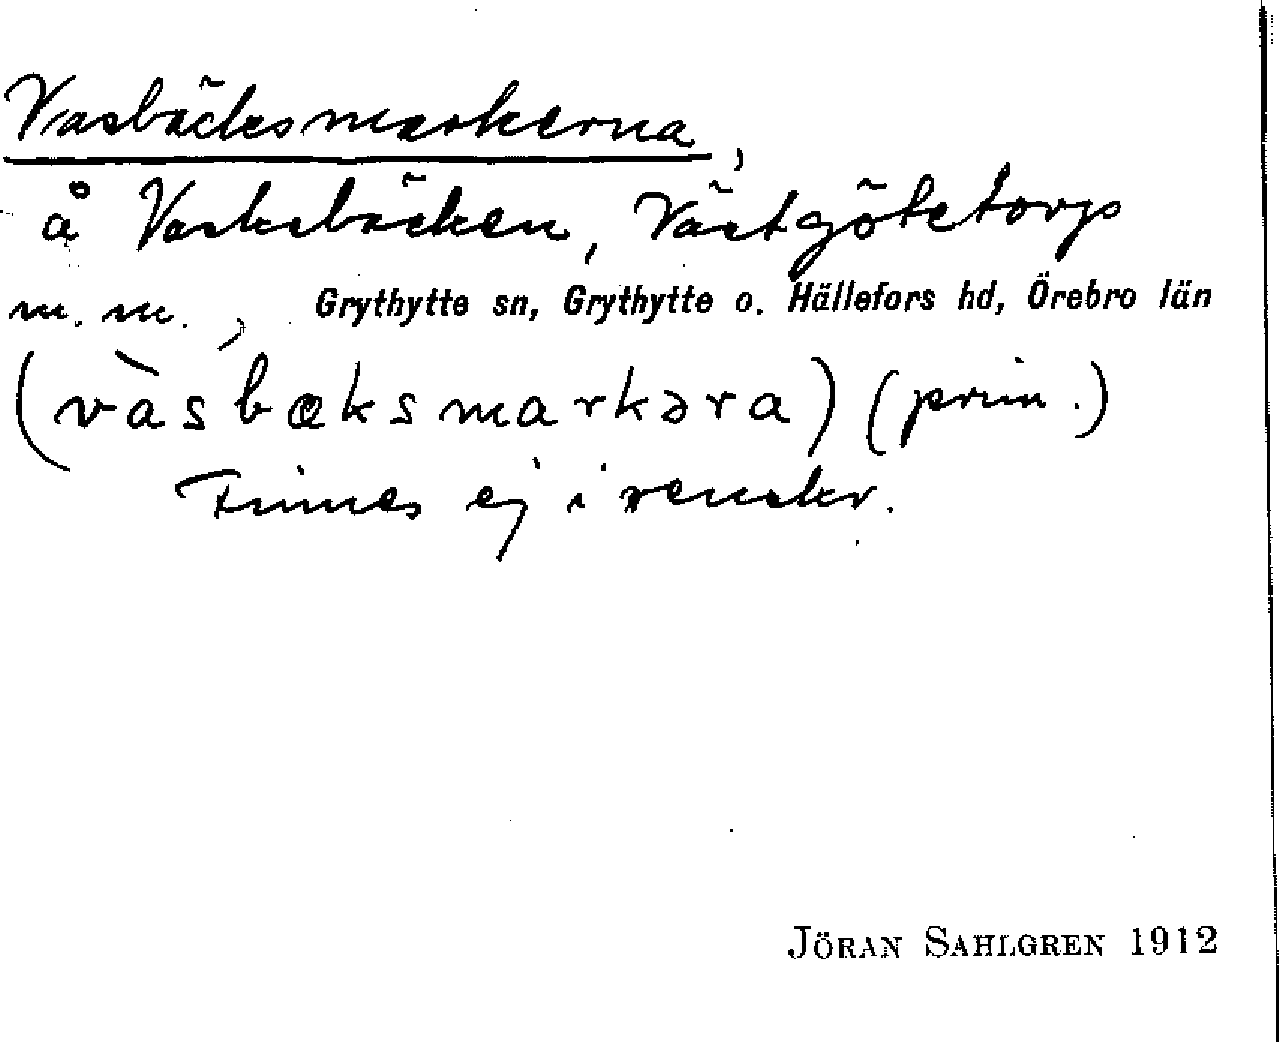 Vasbäcksmarkerna,
å Vasksbäcken, Västgötetorps
m.m., Grythytte sn, Grythytte o. Hällefors hd, Örebro län
(vàsbæksmarkəra) (prim.)
Finnes ej i renskr.
JÖRAN SAHLGREN 1912